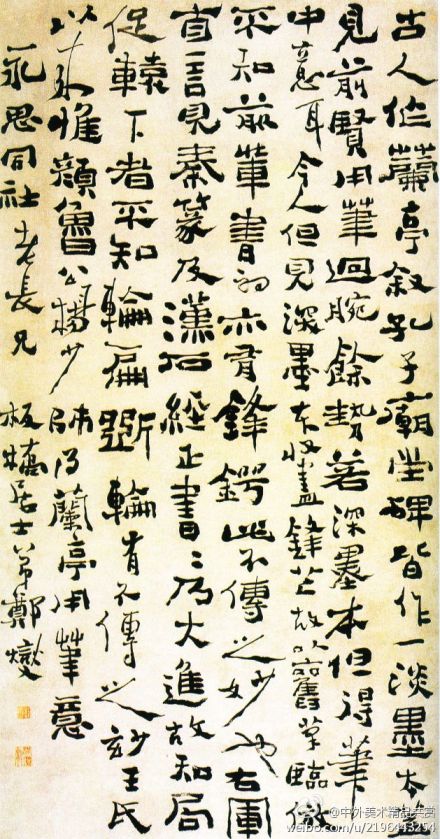 古人作蘭亭敘孔子廟堂碑皆作一淡墨本蓋
見前賢用筆迴腕餘勢若深墨本但得筆
中意耳今人但見深墨本收盡鋒芒故以舊筆臨倣
不知前輩書初亦有鋒鍔此不傳之妙也右軍
自言見秦篆及漢石經正書〻乃大進故知局
促轅下者不知輪扁斲輪有不傳之妙王氏
以來惟顏魯公楊少師得蘭亭用筆意
永思同社老長兄 板橋居士弟鄭燮
@中外美术精品共赏
weibo.com/u/2196443254